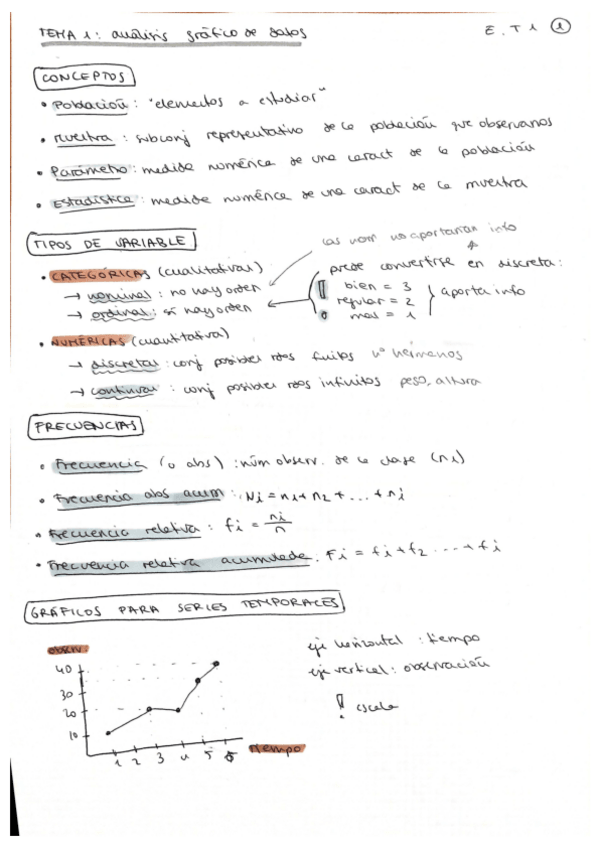 TEMA 1: análisis gráfico de datos
E.T1 1
CONCEPTOS
• Población: "elementos a estudiar"
• Muestra: subconj representativo de la población que observamos
• Parámetro: medida numérica de una caract de la población
• Estadística: medida numérica de una caract de la muestra
TIPOS DE VARIABLE
las nom no aportarían info
• CATEGÓRICAS (cualitativas)
→ nominal: no hay orden
→ ordinal: sí hay orden
puede convertirse en discreta:
bien = 3
regular = 2
mal = 1
aporta info
• NUMÉRICAS (cuantitativa)
→ discretas: conj posibles rdos finitos nº hermanos
→ continuas: conj posibles rdos infinitos peso, altura
FRECUENCIAS
• Frecuencia (o abs): núm observ. de la clase (ni)
• Frecuencia abs acum: Ni = n1 + n2 + ... + ni
• Frecuencia relativa: fi = ni/n
• Frecuencia relativa acumulada. Fi = f1 + f2 ... + fi
GRÁFICOS PARA SERIES TEMPORALES
observ.
40
30
20
10
1 2 3 4 5 6
tiempo
eje horizontal: tiempo
eje vertical: observación
! escala